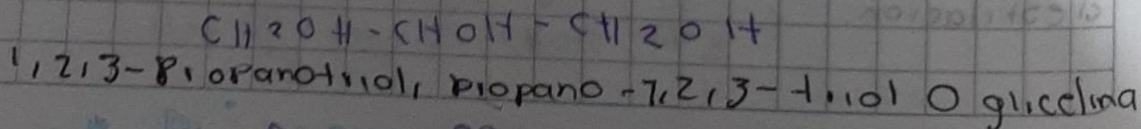 CH2OH-CHOH-CH2OH
1,2,3-Propanotriol, propano-1,2,3-triol O glicerina